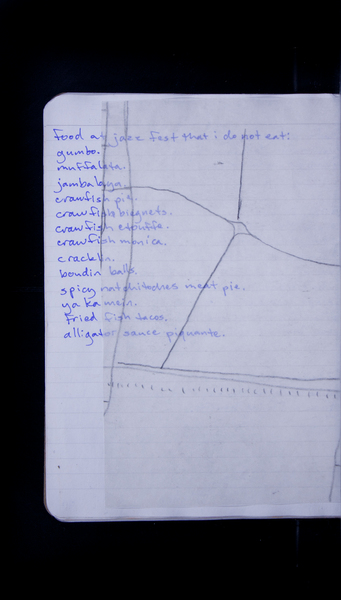 food at jazz fest that i do not eat:
gumbo.
muffalata.
jambalaya.
crawfish pie.
crawfish biegnets.
crawfish etouffe.
crawfish monica.
cracklin.
boudin balls.
spicy natchitoches meat pie.
ya ka mein.
fried fish tacos.
alligator sauce piquante.